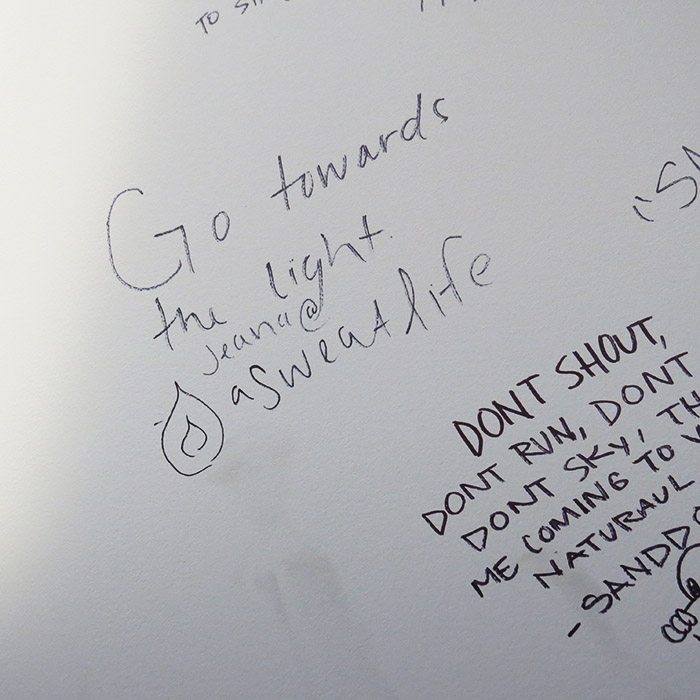 TO
Go towards
the light.
Jeana@
asweatlife
DONT SHOUT,
DONT RUN, DONT
DONT SKY,
ME COMING TO
NATURAUL